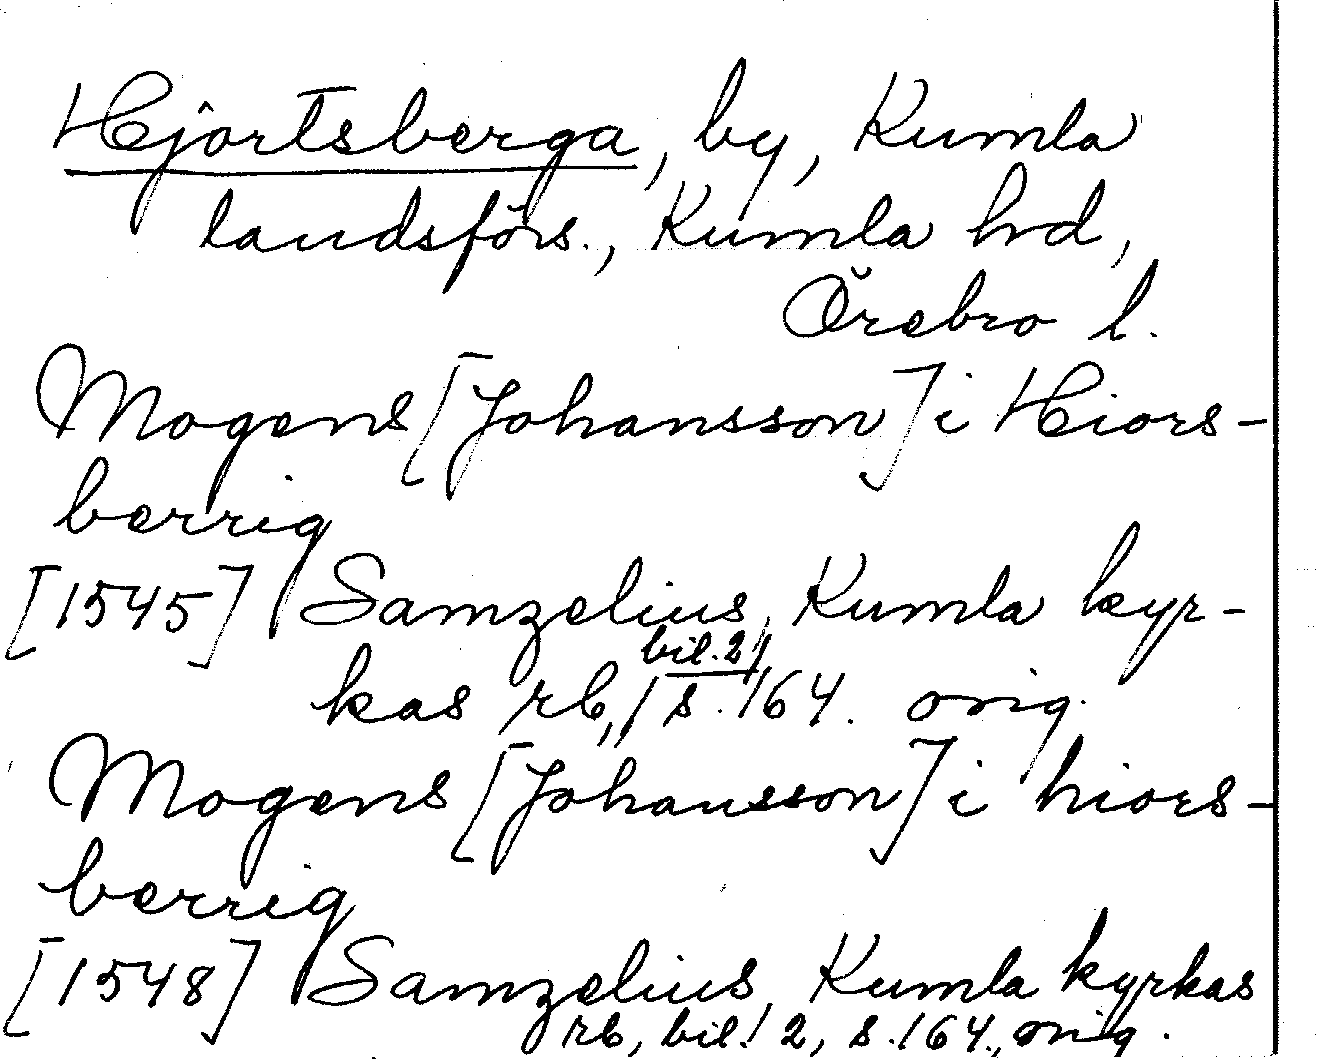 Hjortsberga, by, Kumla
landsförs., Kumla hd,
Örebro l.
Mogens [Johansson] i Hiors-
berrig
[1545] Samzelius, Kumla kyr-
bil. 2,
kas rb, s. 164. orig.
Mogens [Johansson] i hiors-
berrig
[1548] Samzelius, Kumla kyrkas
rb, bil. 2, s. 164., orig.